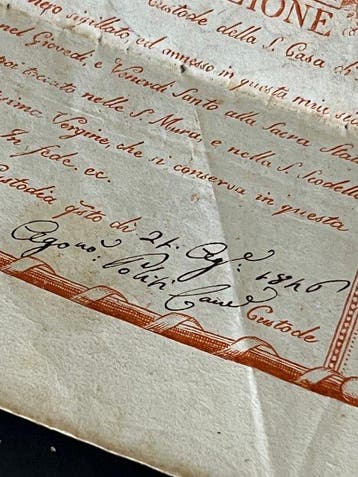 ZIONE
Custode della S. Casa di
sigillato ed annesso in questa mia,
nel Giovedì e Venerdì Santo alla Sacra Sta
toccato nella S. Mura e nella S. Scodell
Vergine, che si conserva in questa
In fede. ec.
Custodia di 21. Ag.e 1846
Politi Custode